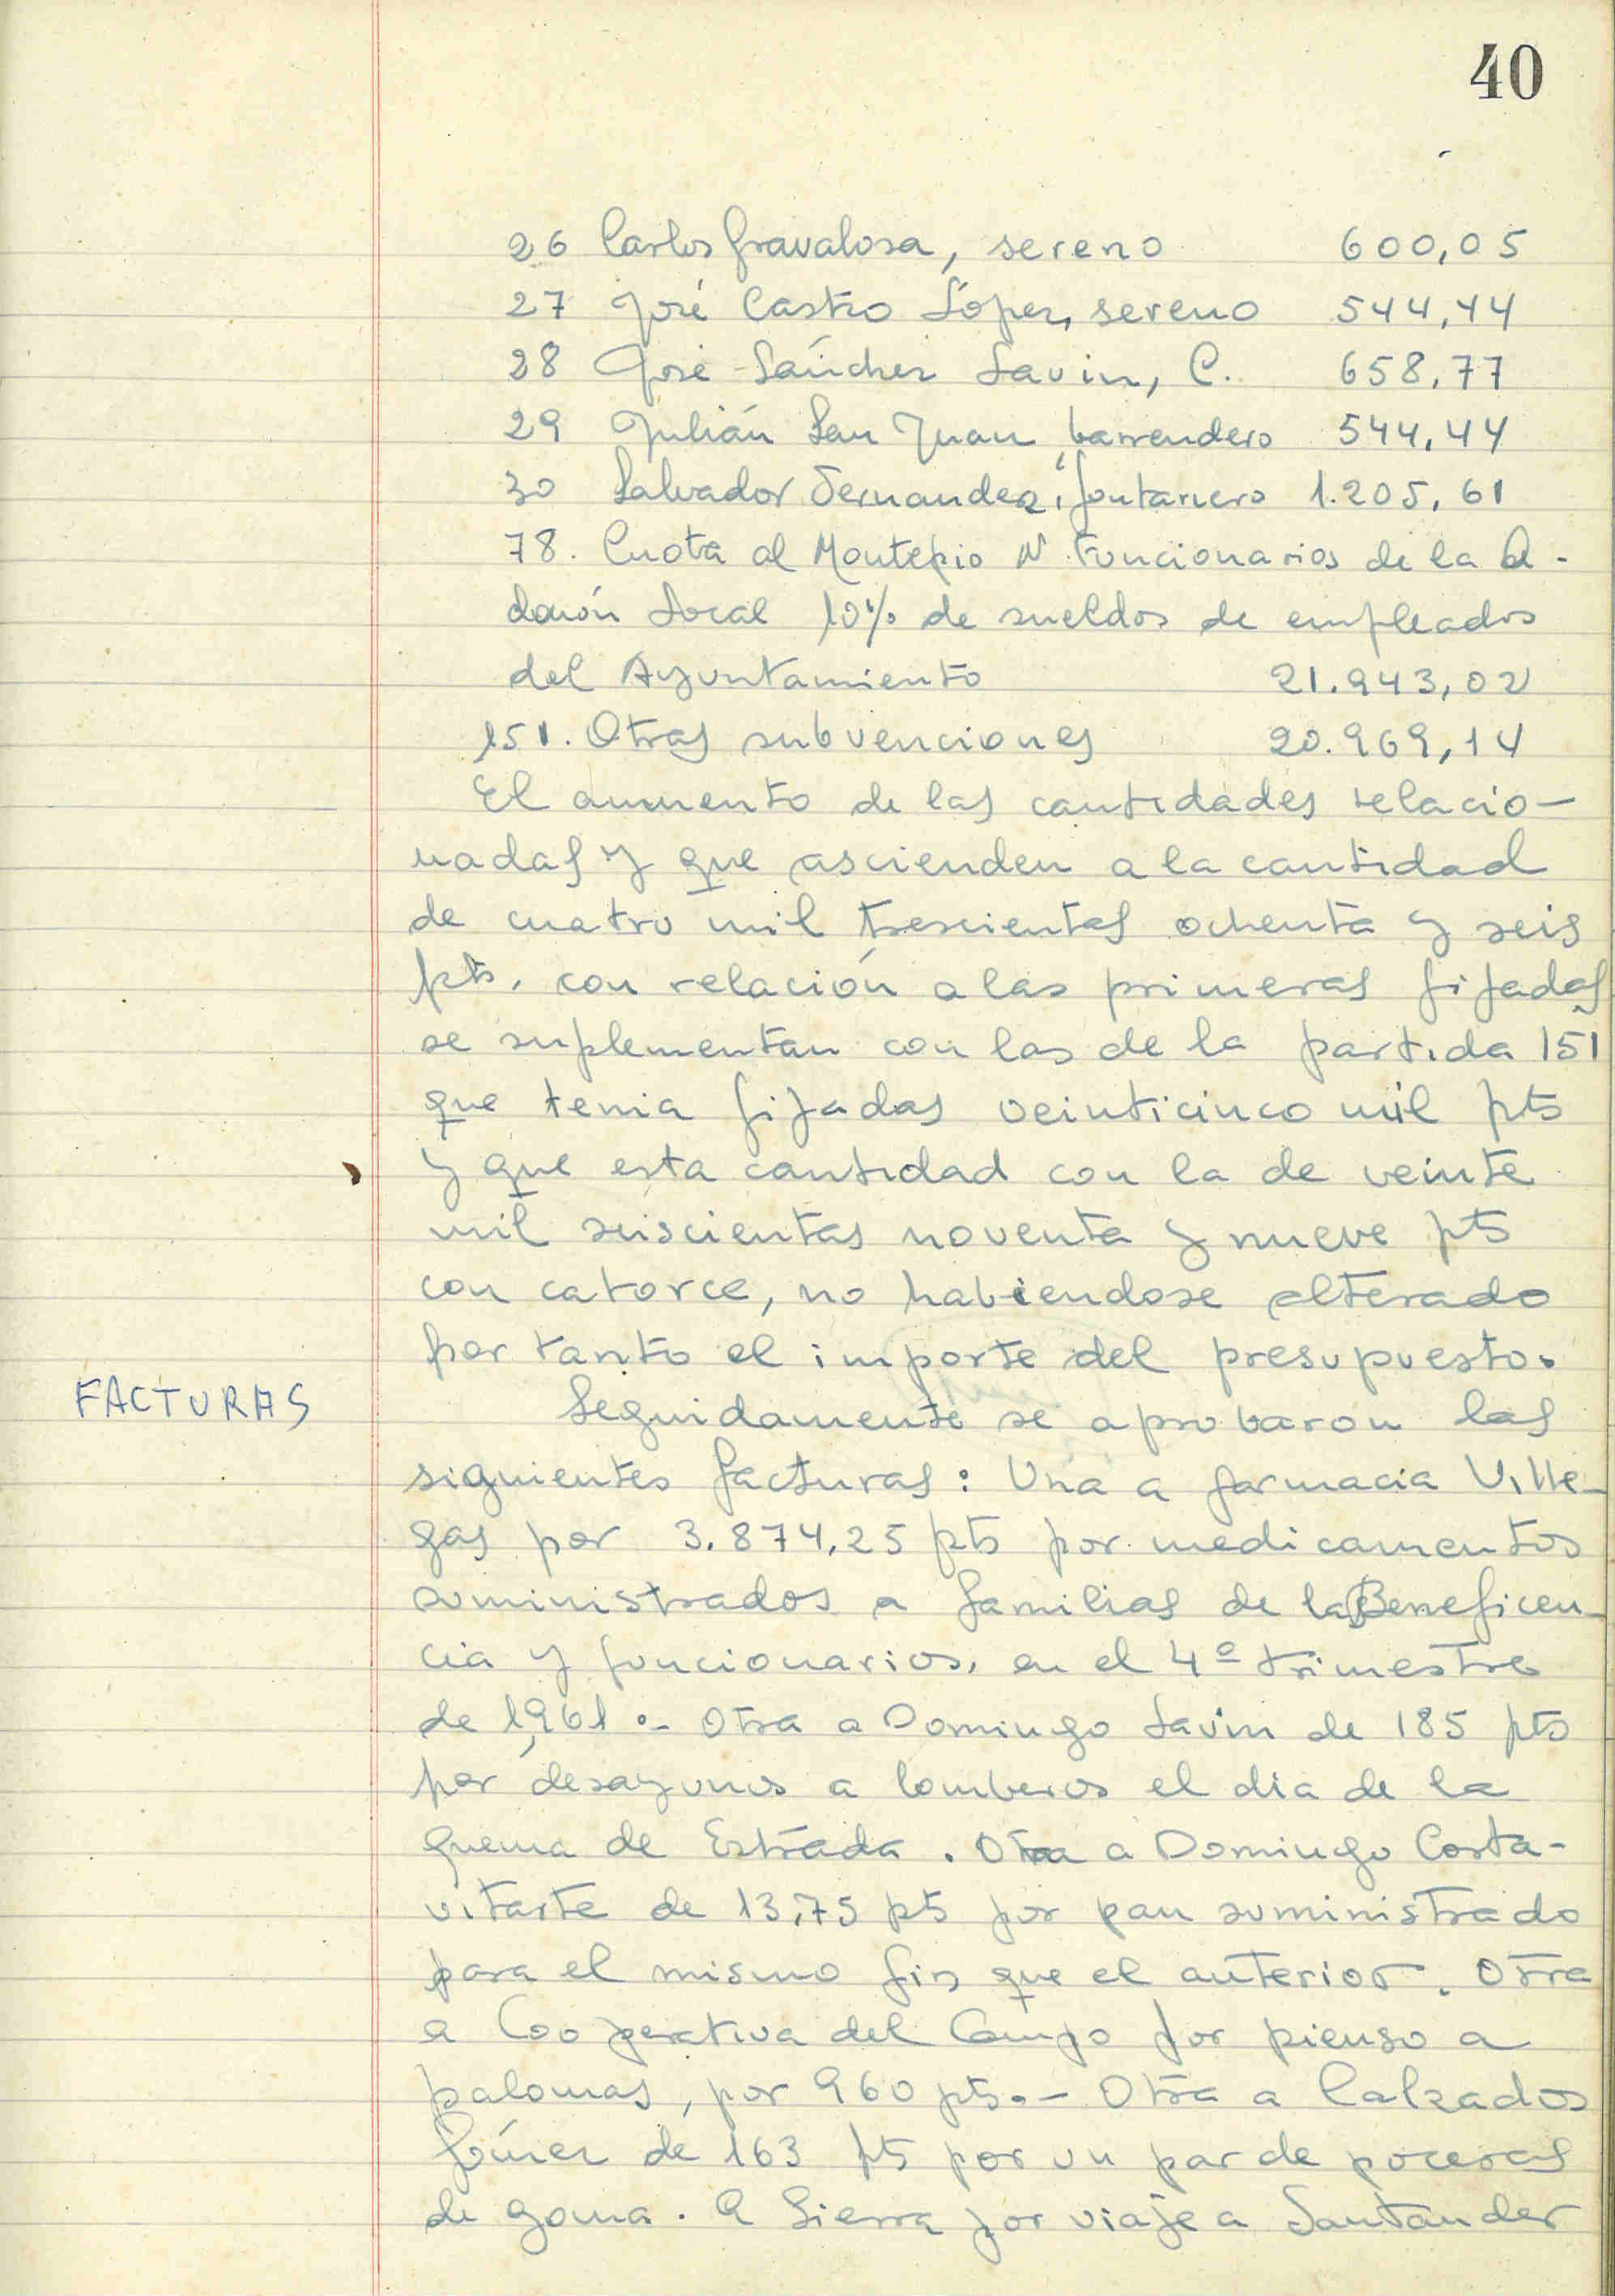 40
26 Carlos Gravalosa, sereno 600,05
27 José Castro López, sereno 544,44
28 José Sánchez Lavin, C. 658,77
29 Julián San Juan, barrendero 544,44
30 Salvador Fernandez, fontanero 1.205,61
78. Cuota al Montepio N. Funcionarios de la A-
domón Local 10% de sueldos de empleados
del Ayuntamiento 21.943,02
151. Otras subvenciones 20.969,14
El aumento de las cantidades relacio-
nadas y que ascienden a la cantidad
de cuatro mil trescientas ochenta y seis
pts, con relación a las primeras fijadas
se suplementan con las de la partida 151
que tenia fijadas veinticinco mil pts
y que esta cantidad con la de veinte
mil seiscientas noventa y nueve pts
con catorce, no habiendose alterado
por tanto el importe del presupuesto.
FACTURAS
Seguidamente se aprobaron las
siguientes facturas: Una a farmacia Ville-
gas por 3.874,25 pts por medicamentos
suministrados a familias de la Beneficen-
cia y funcionarios, en el 4º trimestre
de 1,961.- Otra a Domingo Lavin de 185 pts
por desayunos a bomberos el dia de la
quema de Estrada. Otra a Domingo Costa-
vitarte de 13,75 pts por pan suministrado
para el mismo fin que el anterior. Otra
a Cooperativa del Campo por pienso a
palomas, por 960 pts.- Otra a Calzados
de 163 pts por un par de poceras
de goma. A Sierra por viaje a Santander